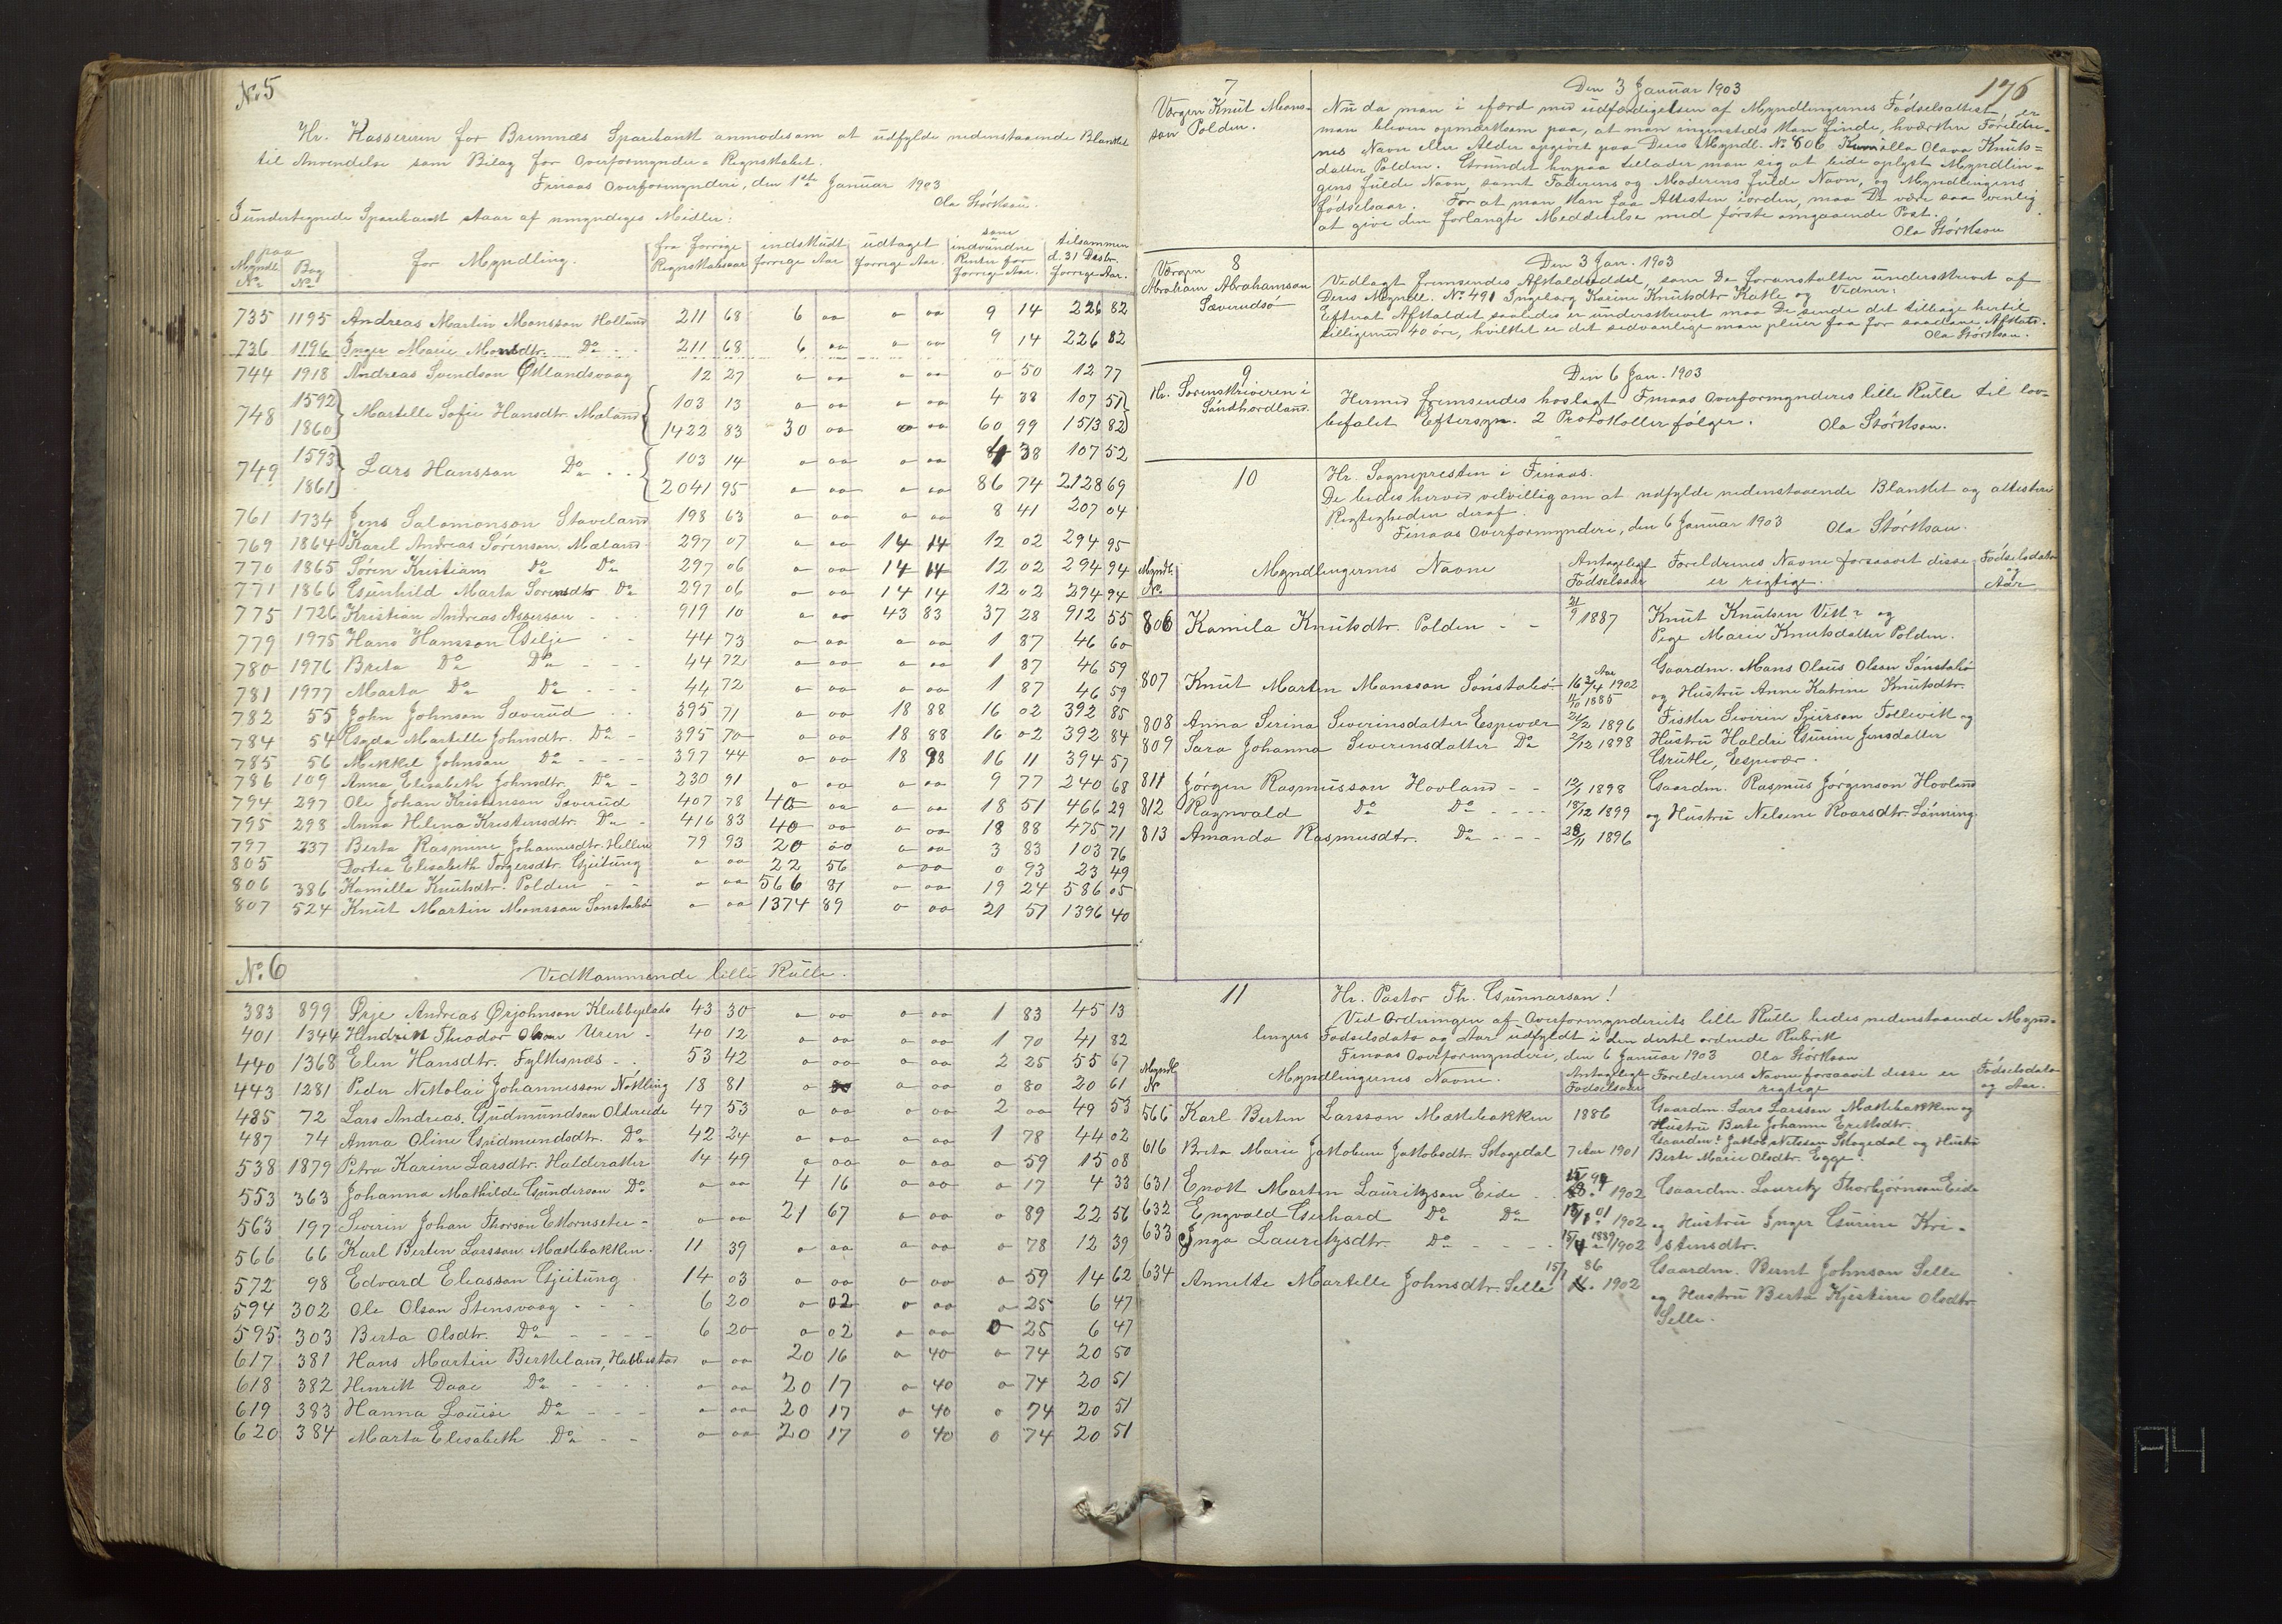 No 5
Hr. Kassereren for Bremnæs Sparebank anmodes om at udfylde nedenstaaende Blanket
til Anvendelse som Bilag for Overformynder-Regnskabet.
Finaas Overformynderi, den 1ste Januar 1903
Ola Størkson.
I undertegnede Sparebank staar af umyndiges Midler:
paa Myndl. No | Bog No | for Myndling. | fra forrige Regnskabsaar | indskudt forrige Aar | udtaget forrige Aar. | som indvundne Renter for forrige Aar. | tilsammen d. 31 Decbr. forrige Aar.
735 1195 Andreas Martin Monsson Holland 211 68 6 00 0 00 9 14 226 82
736 1196 Inger Marie Monsdtr. Do 211 68 6 00 0 00 9 14 226 82
744 1918 Andreas Svendson Øklandsvaag 12 27 0 00 0 00 0 50 12 77
748 1592 Martelle Sofie Hansdtr. Mæland 103 13 0 00 0 00 4 38 107 51
1860 1422 83 30 00 0 00 60 99 1513 82
749 1593 Lars Hansson Do 103 14 0 00 0 00 4 38 107 52
1861 2041 95 0 00 0 00 86 74 2128 69
761 1734 Jens Salomonson Staveland 198 63 0 00 0 00 8 41 207 04
769 1864 Karel Andreas Sørenson Mæland 297 07 0 00 14 14 12 02 294 95
770 1865 Søren Kristian Do Do 297 06 0 00 14 14 12 02 294 94
771 1866 Gunhild Marta Sørensdtr Do 297 06 0 00 14 14 12 02 294 94
775 1726 Kristian Andreas Asserson 919 10 0 00 43 83 37 28 912 55
779 1975 Hans Hansson Gilje 44 73 0 00 0 00 1 87 46 60
780 1976 Brita Do Do 44 72 0 00 0 00 1 87 46 59
781 1977 Marta Do Do 44 72 0 00 0 00 1 87 46 59
782 55 John Johnson Sæverud 395 71 0 00 18 88 16 02 392 85
784 54 Gyda Martelle Johnsdtr. Do 395 70 0 00 18 88 16 02 392 84
785 56 Mikkel Johnson Do 397 44 0 00 18 98 16 11 394 57
786 109 Anna Elisabeth Johnsdtr. Do 230 91 0 00 0 00 9 77 240 68
794 297 Ole Johan Kristenson Sæverud 407 78 40 00 0 00 18 51 466 29
795 298 Anna Helena Kristensdtr. Do 416 83 40 00 0 00 18 88 475 71
797 237 Berta Rasmine Johannesdtr. 79 93 20 00 0 00 3 83 103 76
805 Dortea Elisabeth Torgersdtr. Gjeitung 0 00 22 56 0 00 0 93 23 49
806 386 Kamilla Knutsdtr. Polden 0 00 566 81 0 00 19 24 586 05
807 524 Knut Martin Monsson Sønstabø 0 00 1374 89 0 00 21 51 1396 40
No 6
Vedkommende lille Rulle.
383 899 Ørje Andreas Ørjohnson Klubbeplads 43 30 0 00 0 00 1 83 45 13
401 1344 Hendrik Theodor Olson Uren 40 12 0 00 0 00 1 70 41 82
440 1368 Elen Hansdtr. Fylkesnæs 53 42 0 00 0 00 2 25 55 67
443 1281 Peder Nikolai Johannesson Nøkling 18 81 0 00 0 00 0 80 20 61
485 72 Lars Andreas Gudmundson Oldereide 47 53 0 00 0 00 2 00 49 53
487 74 Anna Oline Gudmundsdtr. Do 42 24 0 00 0 00 1 78 44 02
538 1879 Petra Karine Larsdtr. Halderaker 14 49 0 00 0 00 0 59 15 08
553 363 Johanna Mathilde Gunderson Do 0 00 4 16 0 00 0 17 4 33
563 197 Severin Johan Thorson Ekornseter 0 00 21 67 0 00 0 89 22 56
566 66 Karl Bertin Larsson Mækkebakken 11 39 0 00 0 00 0 78 12 39
572 98 Edvard Eliasson Gjeitung 14 03 0 00 0 00 0 59 14 62
594 302 Ole Olson Stensvaag 6 20 0 02 0 00 0 25 6 47
595 303 Berta Olsdtr. Do 6 20 0 02 0 00 0 25 6 47
617 381 Hans Martin Berkeland, Habbestad 0 00 20 16 0 40 0 74 20 50
618 382 Henrik Daae Do 0 00 20 17 0 40 0 74 20 51
619 383 Hanna Louise Do 0 00 20 17 0 40 0 74 20 51
620 384 Marta Elisabeth Do 0 00 20 17 0 40 0 74 20 51
176
7
Værgen Knut Mons-
son Polden.
Den 3 Januar 1903
Nu da man i efærd med udfærdigelsen af Myndlingernes Fødselsattest, er
man bleven opmærksom paa, at man ingensteds kan finde, hværken Foreldre-
nes Navn eller Alder opgivet paa Deres Myndl. No 806 Kamilla Olava Knuts-
datter Polden. Grundet herpaa tillader man sig at bede oplyst Myndlin-
gens fulde Navn, samt Faderens og Moderens fulde Navn, og Myndlingens
fødselsaar. For at man kan faa Attesten iorden, maa De være saa venlig
at give den forlangte Meddelelse med første omgaaende Post.
Ola Størkson
8
Værgen
Abraham Abrahamson
Sæverudsø
Den 3 Jan. 1903
Vedlagt fremsendes Afkaldseddel, som De foranstalter underskrevet af
Deres Myndl. No 491 Ingeborg Karine Knutsdtr Katle og Vidner.
Efterat Afkaldet saaledes er underskrevet maa De sende det tilbage hertil
tilligemed 40 øre, hvilket er det sedvanlige man pleier faa for saadane Afkald.
Ola Størkson.
9
Hr. Sorenskriveren i
Søndhordland.
Den 6 Jan. 1903
Hermed fremsendes hoslagt Finaas Overformynderis lille Rulle til lov-
befalet Eftersyn. 2 Protokoller følger. Ola Størkson.
10
Hr. Sognepresten i Finaas.
De bedes herved velvillig om at udfylde nedenstaaende Blanket og attestere
Rigtigheden deraf.
Finaas Overformynderi, den 6 Januar 1903 Ola Størkson.
Myndl. No | Myndlingernes Navne | Antageligt Fødselsaar | Foreldrenes Navne forsaavit disse er rigtige. | Fødselsdato og Aar
806 Kamila Knutsdtr. Polden 21/9 1887 Knut Knutsen Vik? og
Pege Marie Knutsdatter Polden.
807 Knut Martin Monsson Sønstabø 16 Aar 2/4 1902 Gaardm. Mons Olaus Olson Sønstabø
11/10 1885 og Hustru Anne Katrine Knutsdtr.
808 Anna Serina Severinsdatter Espevær 21/2 1896 Fisker Sevirin Sjurson Tollevik og
809 Sara Johanna Severinsdatter Do 2/12 1898 Hustru Haldri Gurine Jensdatter
Grutle, Espevær.
811 Jørgen Rasmusson Hovland 12/1 1898 Gaardm. Rasmus Jørgenson Hovland
812 Ragnvald Do Do 18/12 1899 og Hustru Nelsine Roarsdtr. Lønning.
813 Amanda Rasmusdtr. Do 28/11 1896
11
Hr. Pastor Th. Gunnarson!
Ved Ordningen af Overformynderiets lille Rulle bedes nedenstaaende Mynd-
lingers Fødselsdato og Aar udfyldt i den dertil ordnede Rubrik
Finaas Overformynderi, den 6 Januar 1903 Ola Størkson
Myndl. No | Myndlingernes Navne. | Antageligt Fødselsaar | Foreldrenes Navne forsaavit disse er rigtige | Fødselsdato og Aar.
566 Karl Bertin Larsson Mækkebakken 1886 Gaardm. Lars Larsson Mækkebakken og
Hustru Berte Johanne Eriksdtr.
616 Brita Marie Jakobine Jakobsdtr. Skogedal 7 Aar 1901 Gaardm. Jakob Nelsson Skogedal og Hustru
Berte Marie Olsdtr. Egge.
631 Enok Martin Lauritzson Eide 1902 Gaardm. Lauritz Thorbjørnson Eide
632 Engvald Gerhard Do Do 1902 og Hustru Inger Gurine Kri-
633 Inga Lauritzsdtr. Do 1889 1902 stensdtr.
634 Annette Martelle Johnsdtr. Selle 15/7 86 1902 Gaardm. Bernt Johnson Selle
og Hustru Berta Kjestine Olsdtr.
Selle.